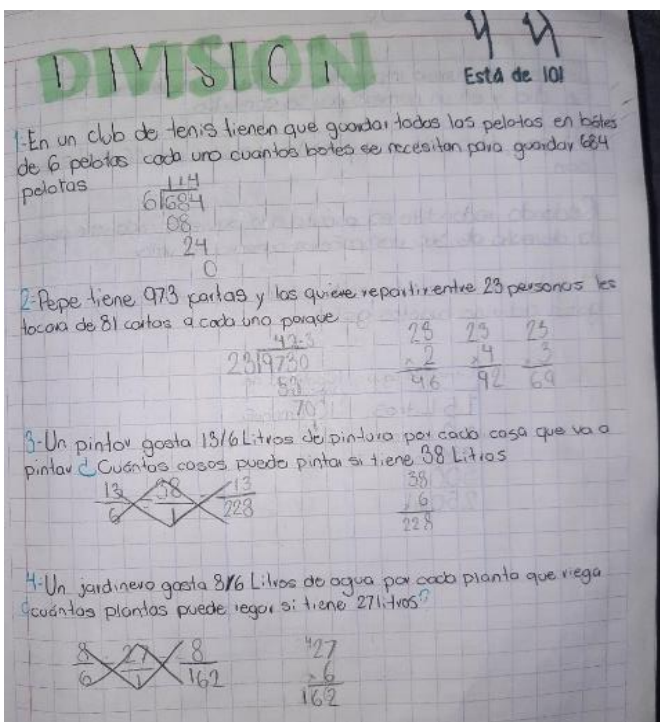 DIVISION
Está de 10!
1-En un club de tenis tienen que guardar todas las pelotas en botes
de 6 pelotas cada uno cuantos botes se necesitan para guardar 684
pelotas
114
6 684
08
24
0
2-Pepe tiene 973 cartas y las quiere repartir entre 23 personas les
tocara de 81 cartas a cada uno porque
42.3
23 9730
53
70
23 23 23
x 2 x 4 x 3
46 92 69
3-Un pintor gasta 13/6 Litros de pintura por cada casa que va a
pintar ¿Cuántas casas puede pintar si tiene 38 Litros
13 38 13
6 1 228
38
x 6
228
4-Un jardinero gasta 8/6 Litros de agua por cada planta que riega
¿cuántas plantas puede regar si tiene 27 litros?
8 27 8
6 1 162
4
27
x 6
162